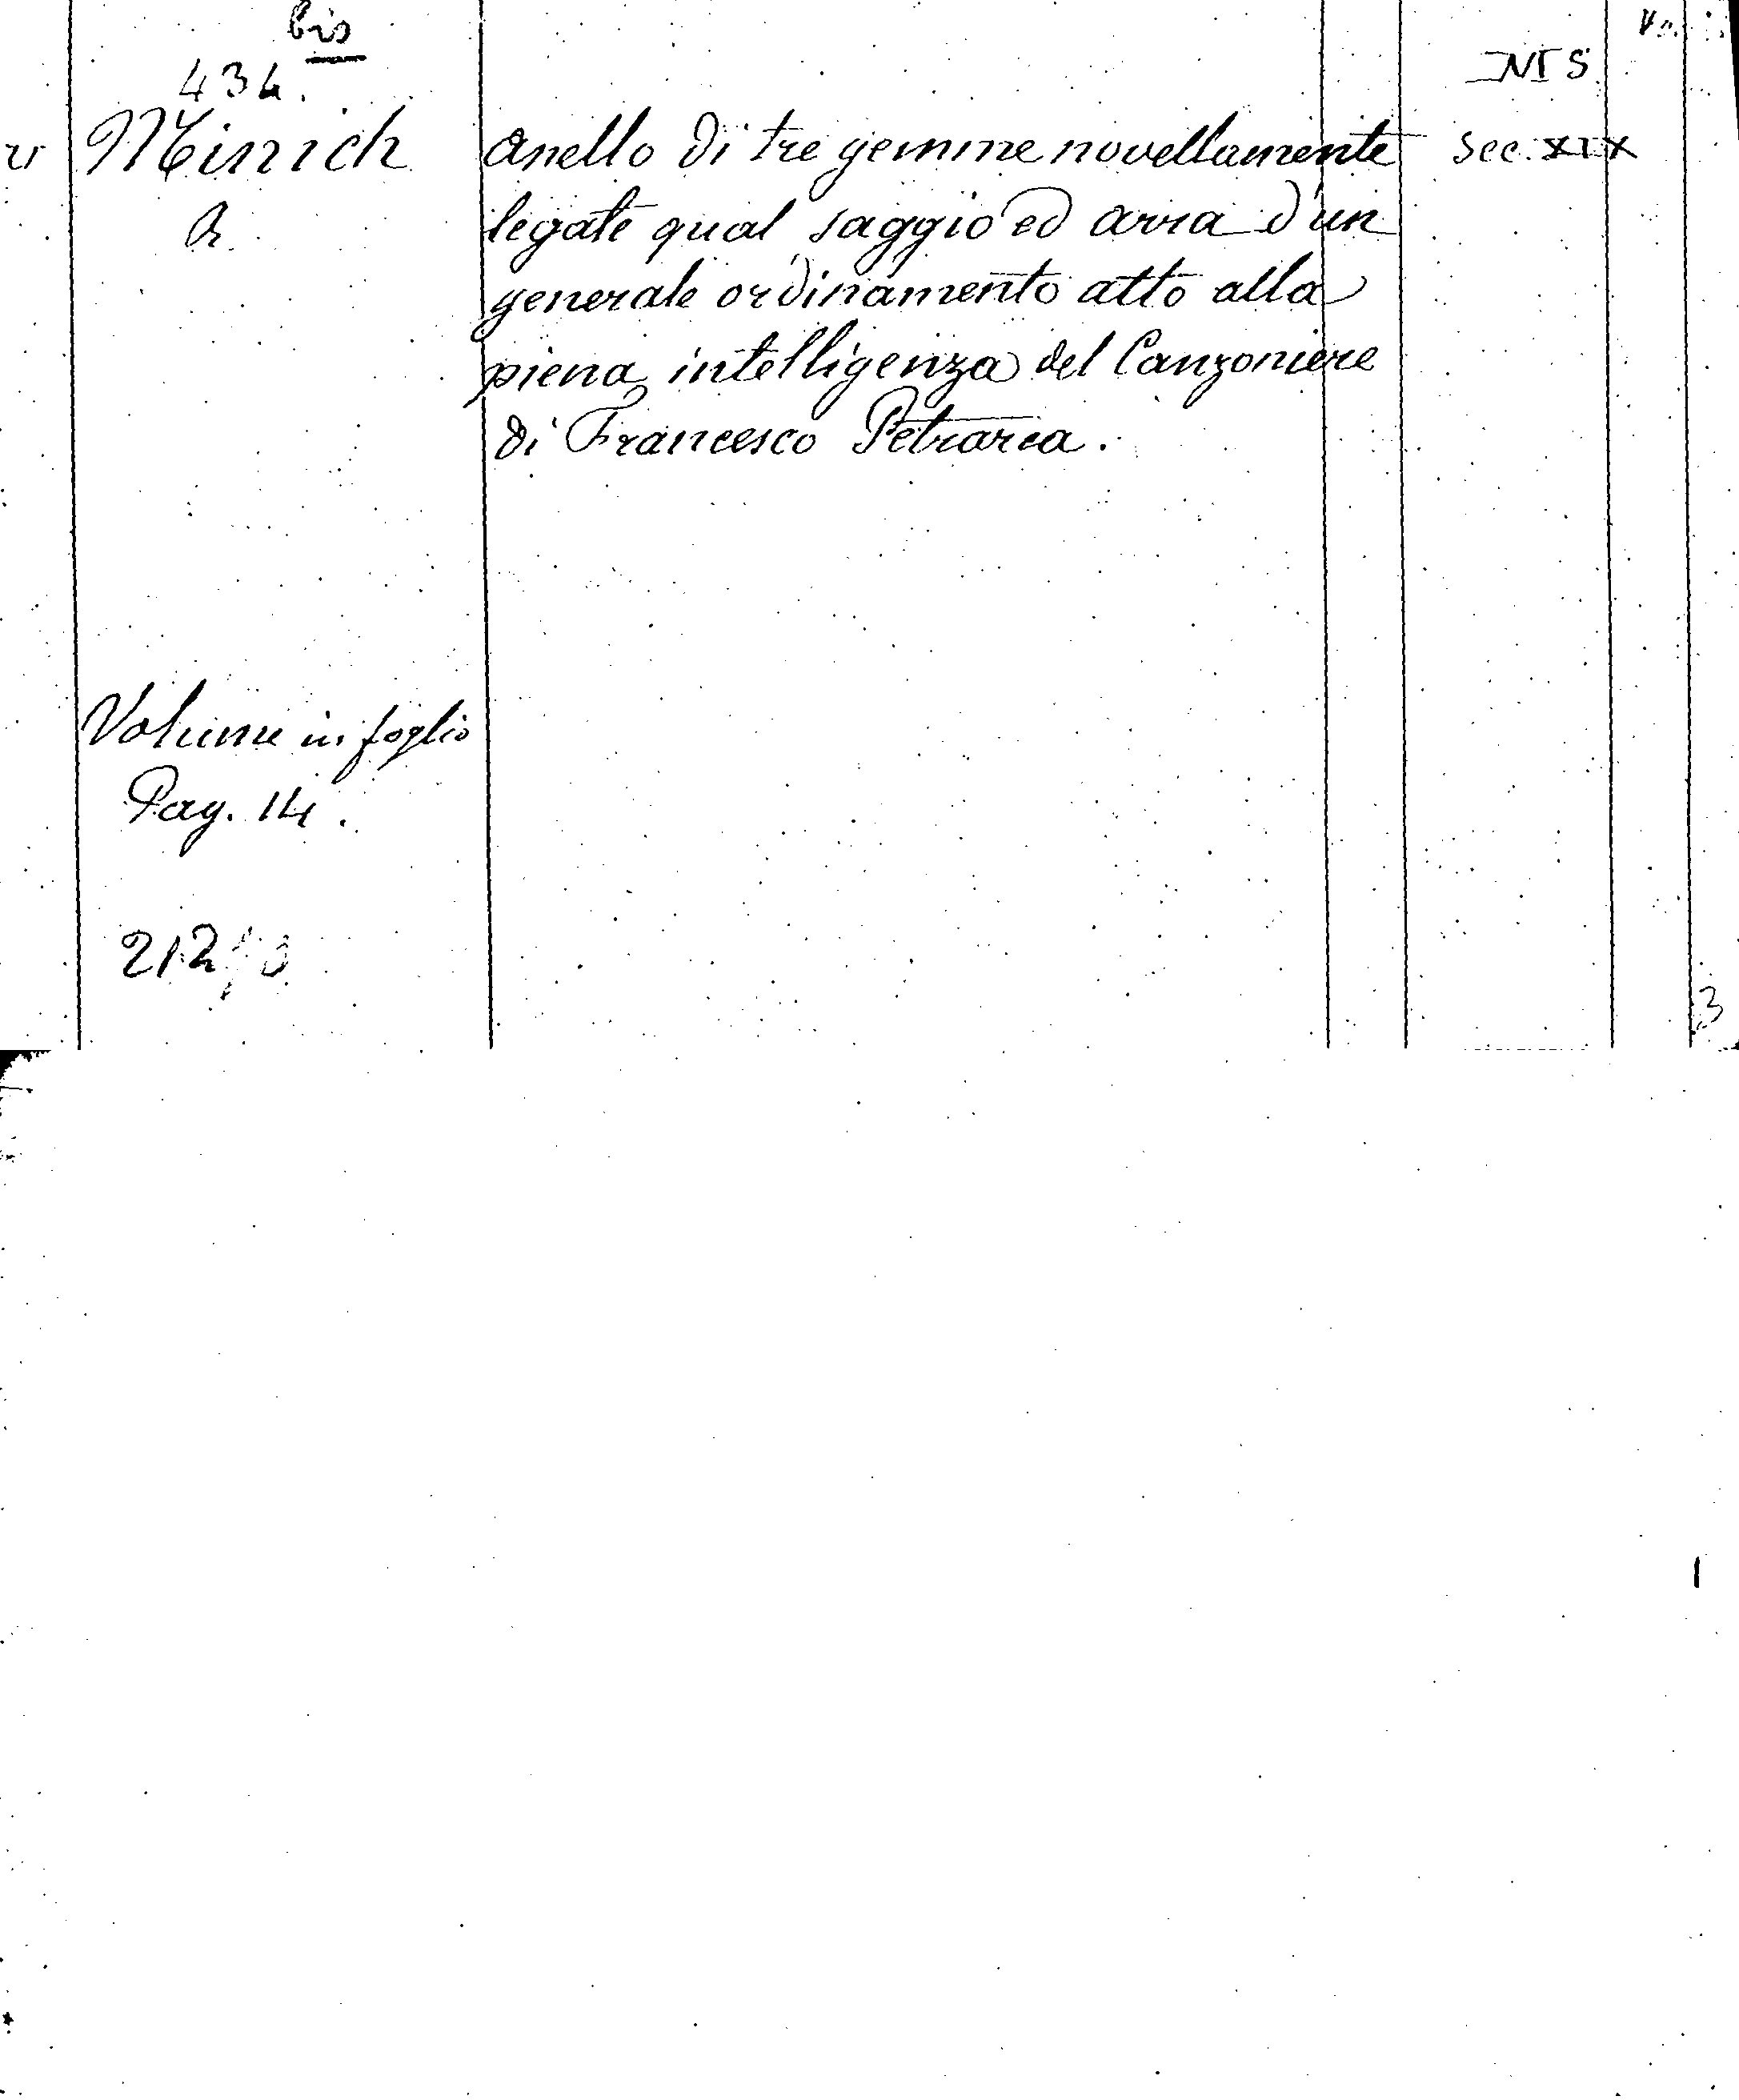 bis
434.
MS.
Minich
anello di tre gemme novellamente
sec. XIX
legate qual saggio ed arra d'un
generale ordinamento atto alla
piena intelligenza del Canzoniere
di Francesco Petrarca.
Volume in foglio
Pag. 14.
212
3